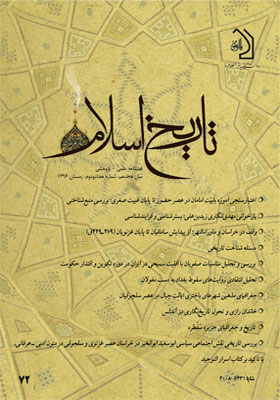 تاریخ اسلام
فصلنامه علمی - پژوهشی
سال هجدهم، شماره هفتادودوم، زمستان ۱۳۹۶
اعتبارسنجی آموزه بابیّت امامان در عصر حضور تا پایان غیبت صغری؛ بررسی منبع‌شناختی
بازخوانی مهدی‌انگاری زیدبن‌علی؛ بسترشناسی و فرایندشناسی
وقف در خراسان و ماوراءالنهر؛ از پیدایش سامانیان تا پایان غزنویان
مسئله شناخت تاریخی
بررسی و تحلیل مناسبات صفویان با اقلیت مسیحی در ایران در دوره تکوین و اقتدار حکومت
تحلیل انتقادی روایت‌های سقوط بغداد به دست مغولان
جغرافیای مذهبی شهرهای باختری ایالت جبال در عصر سلجوقیان
خاندان رازی و تحول تاریخ‌نگاری در آندلس
تاریخ و جغرافیای جزیره سُقطره
بررسی تاریخی نقش اجتماعی سیاسی ابوسعید ابوالخیر در خراسان عصر غزنوی و سلجوقی در متون ادبی ـ عرفانی،
با تأکید بر کتاب اسرار التوحید
۷۲